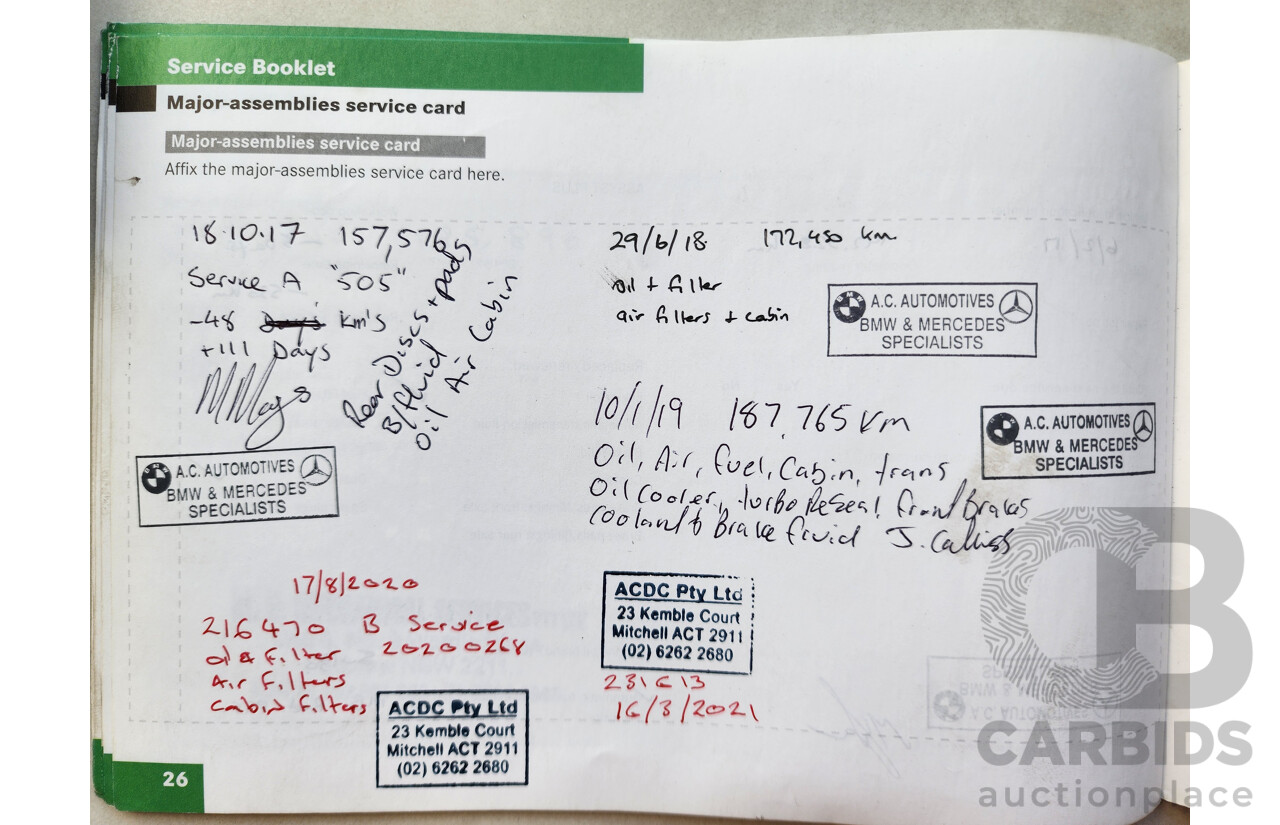 Service Booklet
Major-assemblies service card
Major-assemblies service card
Affix the major-assemblies service card here.
18·10·17 157,576
Service A "505"
-48 km's
+111 Days
Rear Discs + pads
B/fluid
Oil Air Cabin
A.C. AUTOMOTIVES
BMW & MERCEDES
SPECIALISTS
29/6/18 172,450 km
oil + filter
air filters + cabin
A.C. AUTOMOTIVES
BMW & MERCEDES
SPECIALISTS
10/1/19 187,765 km
Oil, Air, fuel, Cabin, trans
Oil cooler, turbo Reseal, front Brakes
Coolant & Brake fluid J.
A.C. AUTOMOTIVES
BMW & MERCEDES
SPECIALISTS
17/8/2020
216470 B Service
oil & Filter 20200268
Air Filters
Cabin filters
ACDC Pty Ltd
23 Kemble Court
Mitchell ACT 2911
(02) 6262 2680
ACDC Pty Ltd
23 Kemble Court
Mitchell ACT 2911
(02) 6262 2680
231613
16/3/2021
26
CARBIDS
auctionplace